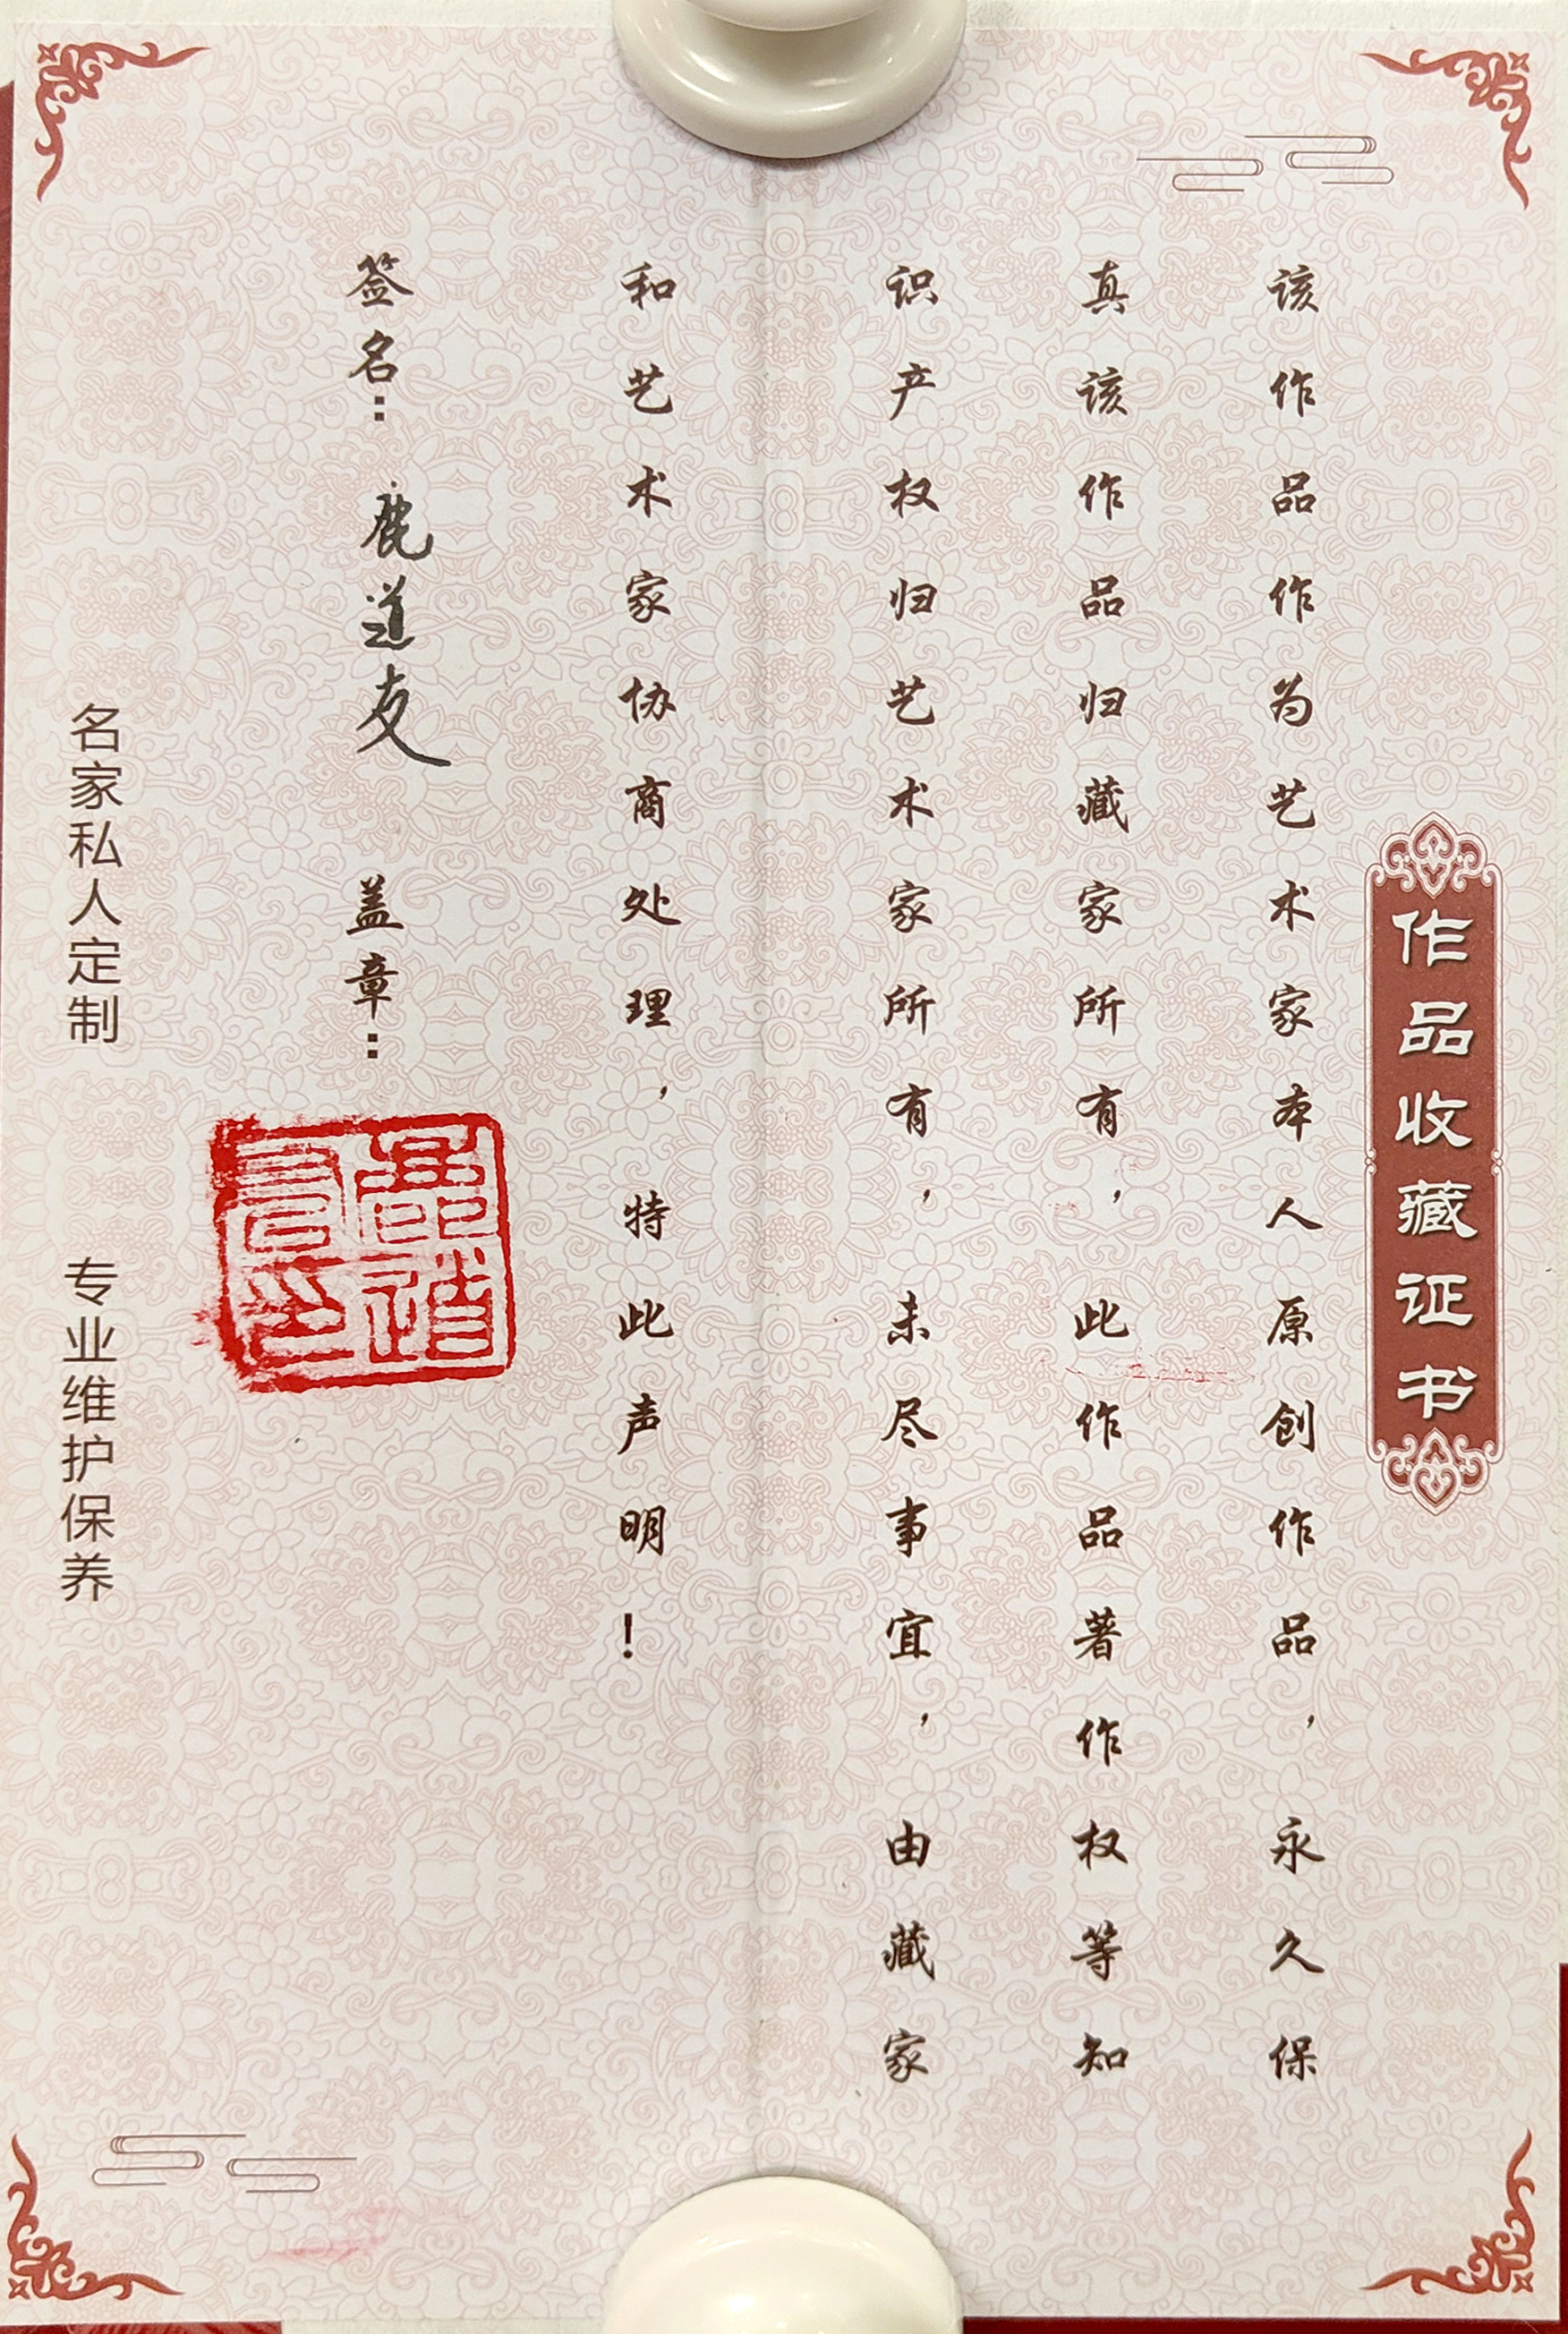 作品收藏证书
该作品作为艺术家本人原创作品，永久保
真该作品归藏家所有，此作品著作权等知
识产权归艺术家所有，未尽事宜，由藏家
和艺术家协商处理，特此声明！
签名：鹿道友 盖章：
名家私人定制 专业维护保养